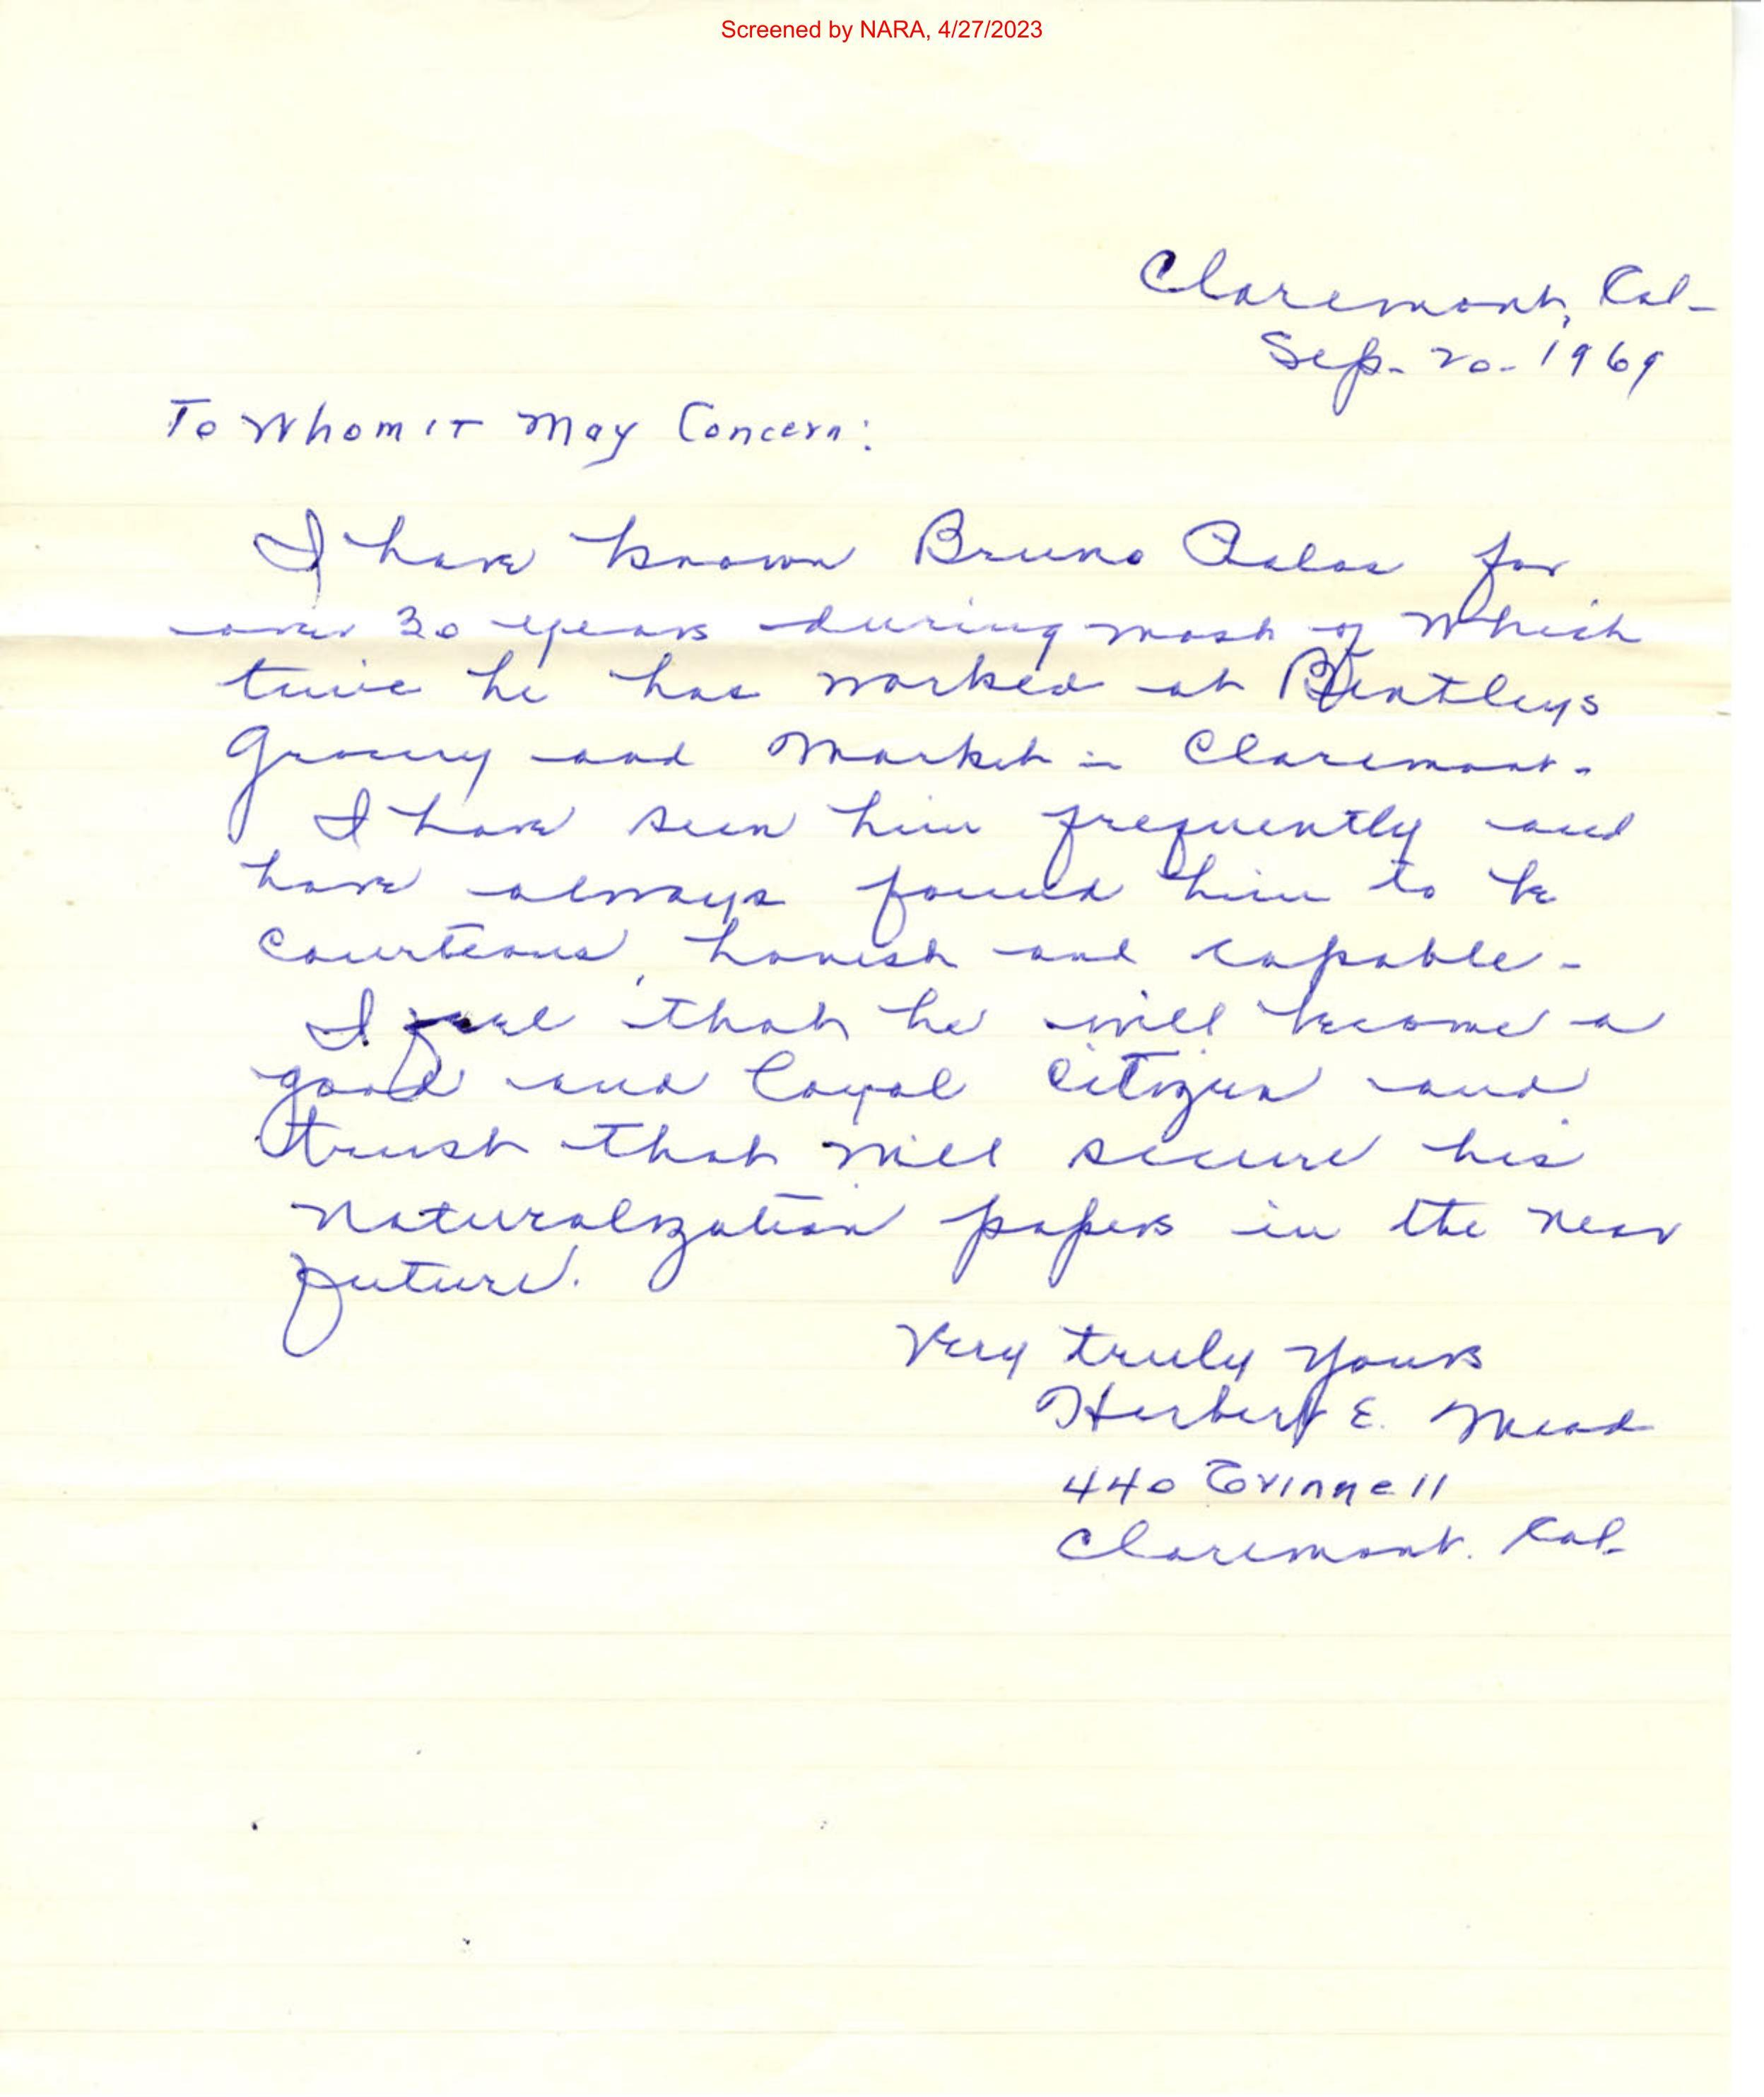 Screened by NARA, 4/27/2023
Claremont, Cal-
Sep- 20- 1969
To Whom IT May Concern:
I have known Bruno for
over 30 years during most of which
time he has worked at Bentleys
Grocery and Market in Claremont.
I have seen him frequently and
have always found him to be
courteous, honest and capable-
I feel that he will become a
good and loyal citizen and
trust that will secure his
naturalization papers in the near
future.
Very truly yours
Herbert E. Mead
440 Grinnell
Claremont. Cal-